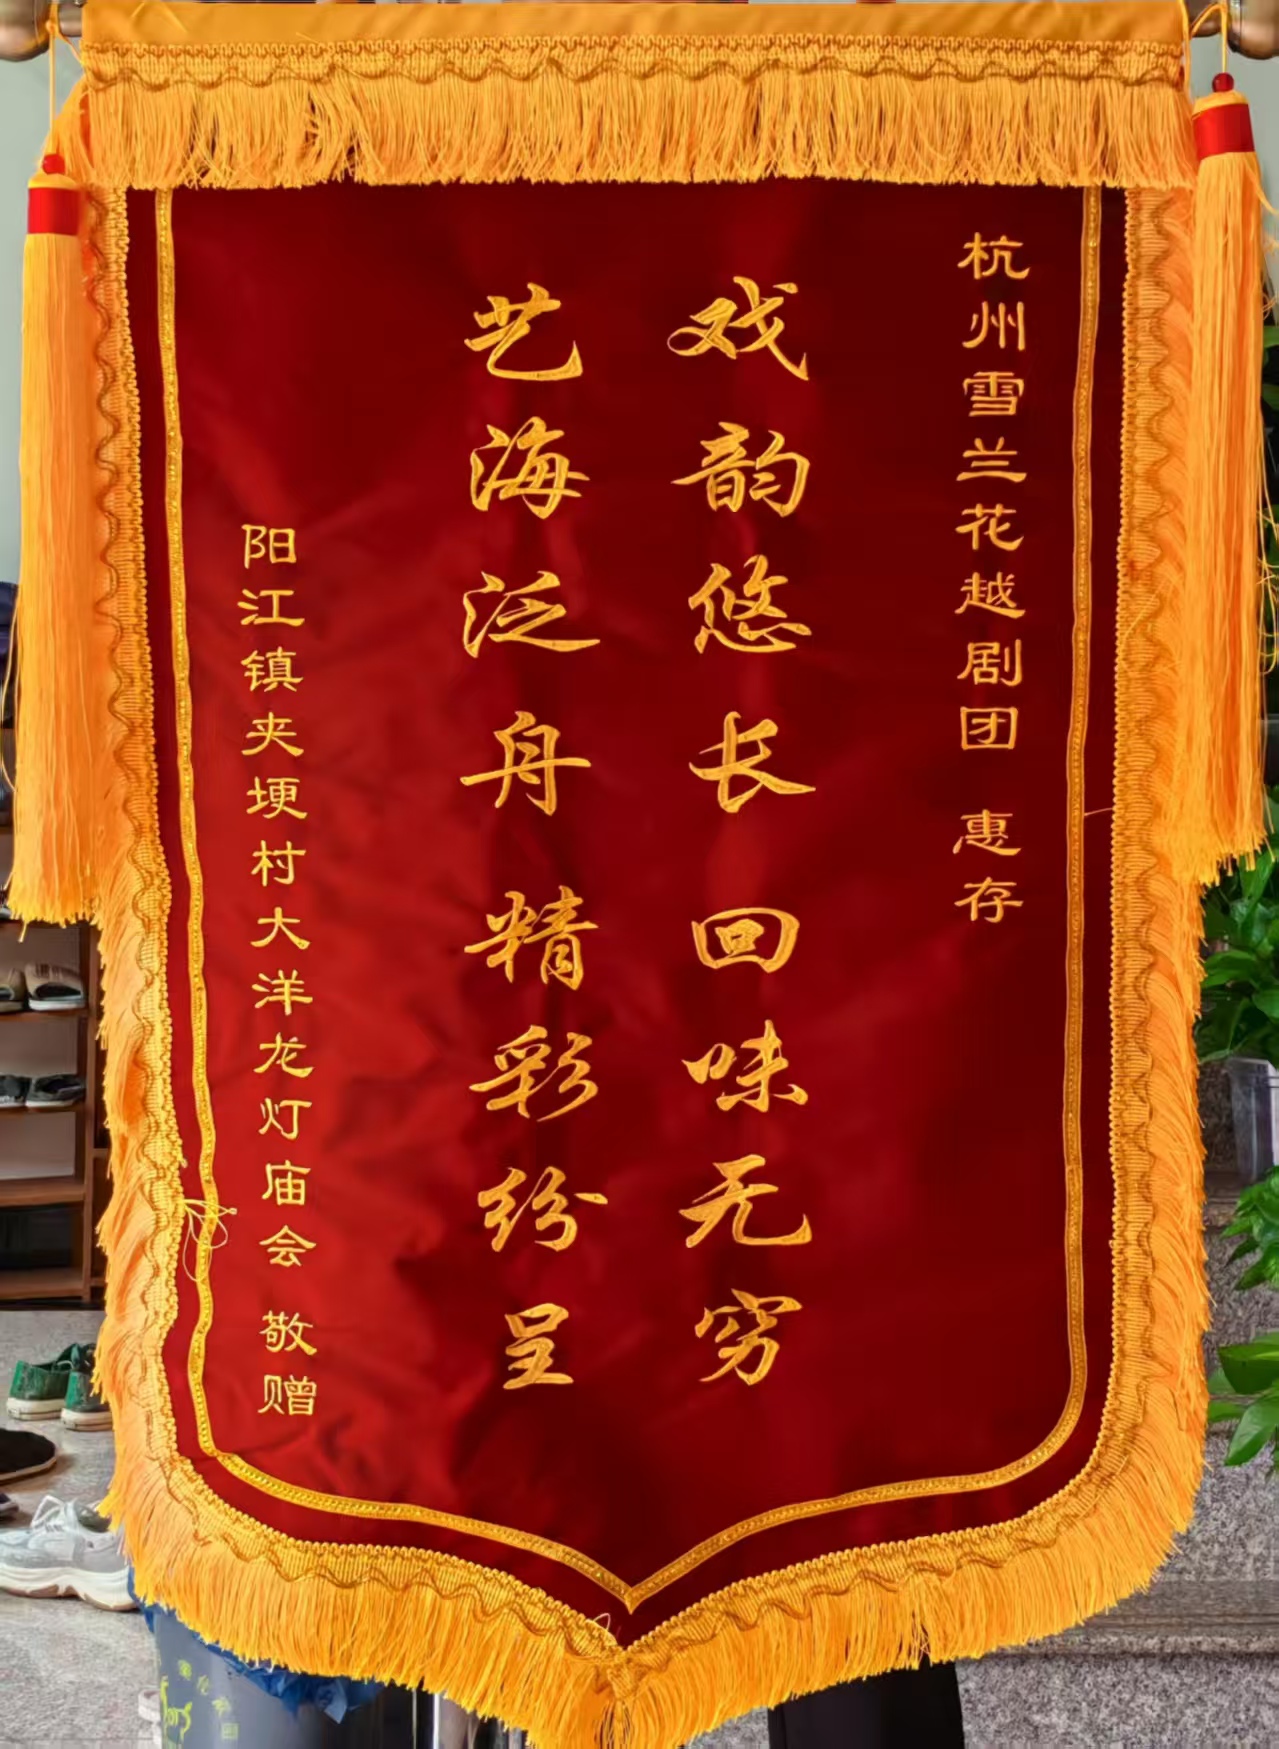 杭州雪兰花越剧团 惠存
戏韵悠长回味无穷
艺海泛舟精彩纷呈
阳江镇夹埂村大洋龙灯庙会 敬赠